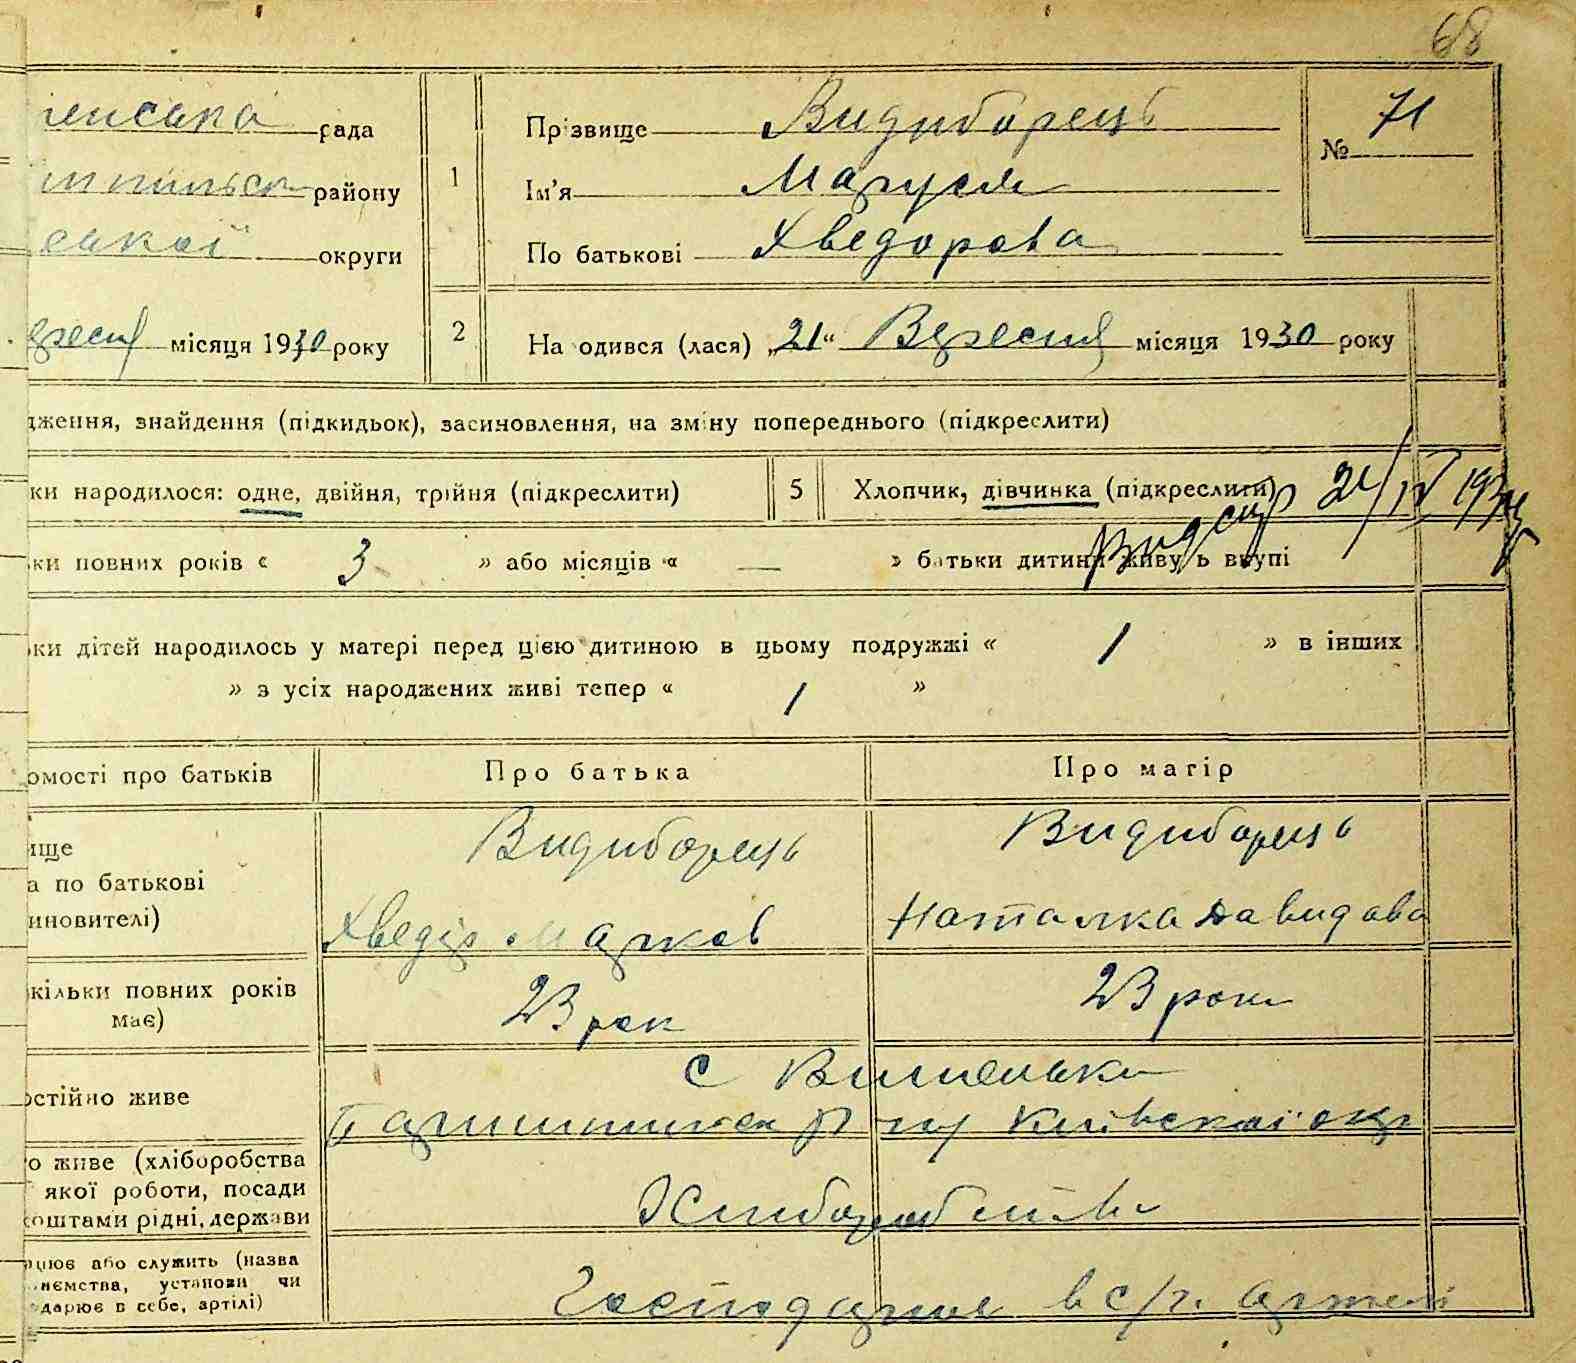 68
рада
Прізвище Видиборець
№ 71
району
1
Ім'я Маруся
ської округи
По батькові Хведорова
Вересня місяця 1930 року
2
На одився (лася) „21“ Вересня місяця 1930 року
дження, знайдення (підкидьок), засиновлення, на зміну попереднього (підкреслити)
ки народилося: одне, двійня, трійня (підкреслити)
5
Хлопчик, дівчинка (підкреслити)
ки повних років « 3 » або місяців « — » батьки дитини живуть вкупі
ки дітей народилось у матері перед цією дитиною в цьому подружжі « 1 » в інших
» з усіх народжених живі тепер « 1 »
омості про батьків
Про батька
Про матір
ище
а по батькові
иновителі)
Видиборець
Хведір Марков
Видиборець
Наталка Давидова
кільки повних років
має)
23 рок
23 роки
остійно живе
с Вишеньки
Київської окр
о живе (хліборобства
якої роботи, посади
коштами рідні, держави
Хліборобство
цює або служить (назва
иємства, установи чи
одарює в себе, артілі)
Господарює в с/г. артелі